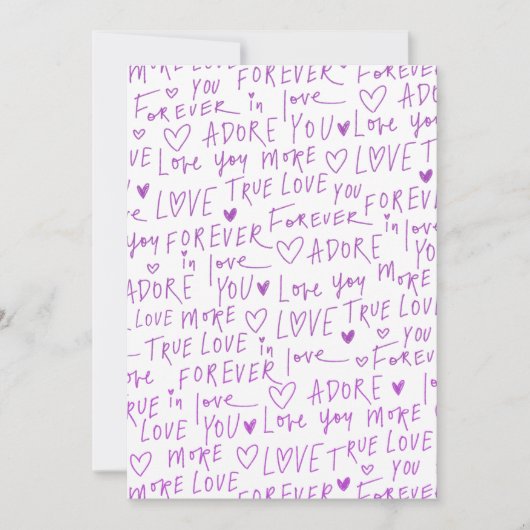 MORE LOVE YOU FOREVER MORE
FOREVER in love ♡ ADORE
♡ ADORE YOU ♥ Love you
VE Love you more ♡ LOVE TRUE
♥ LOVE TRUE LOVE YOU FOREVER
you FOREVER FOREVER in love
in love ♡ ADORE YOU
ADORE YOU ♥ Love you more
LOVE MORE ♡ LOVE TRUE LOVE
TRUE LOVE in love ♥ YOU
FOREVER ♡ FOREVER
RUE in love ♡ ADORE ♥ love
LOVE YOU ♥ Love you MORE
♡ MORE ♡ LOVE TRUE LOVE
MORE LOVE FOREVER ♥ YOU in